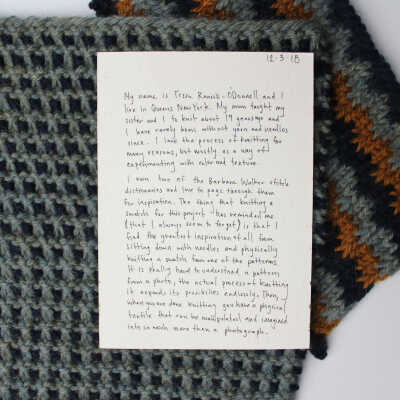 12-3-18
My name is Tresa Ranich-O'Donnell and I
live in Queens New York. My mom taught my
sister and I to knit about 19 years ago and
I have rarely been without yarn and needles
since. I love the process of knitting for
many reasons, but mostly as a way of
experimenting with color and texture.
I own two of the Barbara Walker stitch
dictionaries and love to page through them
for inspiration. The thing that knitting a
swatch for this project has reminded me
(that I always seem to forget) is that I
find the greatest inspiration of all, from
sitting down with needles and physically
knitting a swatch from one of the patterns.
It is really hard to understand a pattern
from a photo, the actual process of knitting
it expands its possibilities endlessly. Then,
when you are done knitting you have a physical
textile that can be manipulated and imagined
into so much more than a photograph.